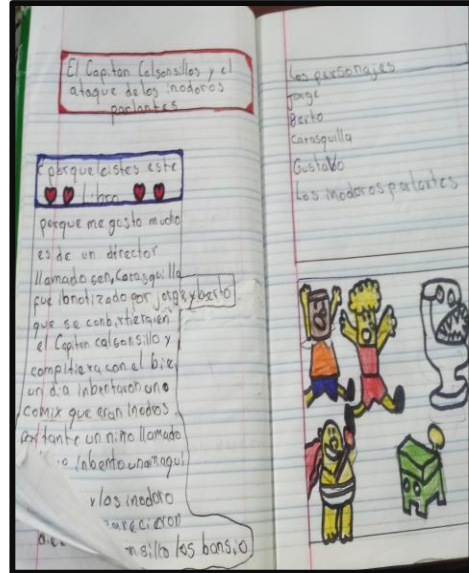 El Capitan Calsonsillos y el
ataque de los inodoros
parlantes
¿porque leistes este
libro
porque me gusto mucho
es de un director
llamado señ, Carasquilla
fue ibnotizado por jorge y berto
que se conbirtiera en
el Capitan calsonsillo y
compitiera con el bie
un dia inbentaron uno
comix que eran Inodros
parlante un niño llamado
inbento una maqui
y los inodoro
parecieron
nsillo los bansio
Los personajes
jorge
Berto
Carasquilla
Gustavo
Los inodoros parlantes